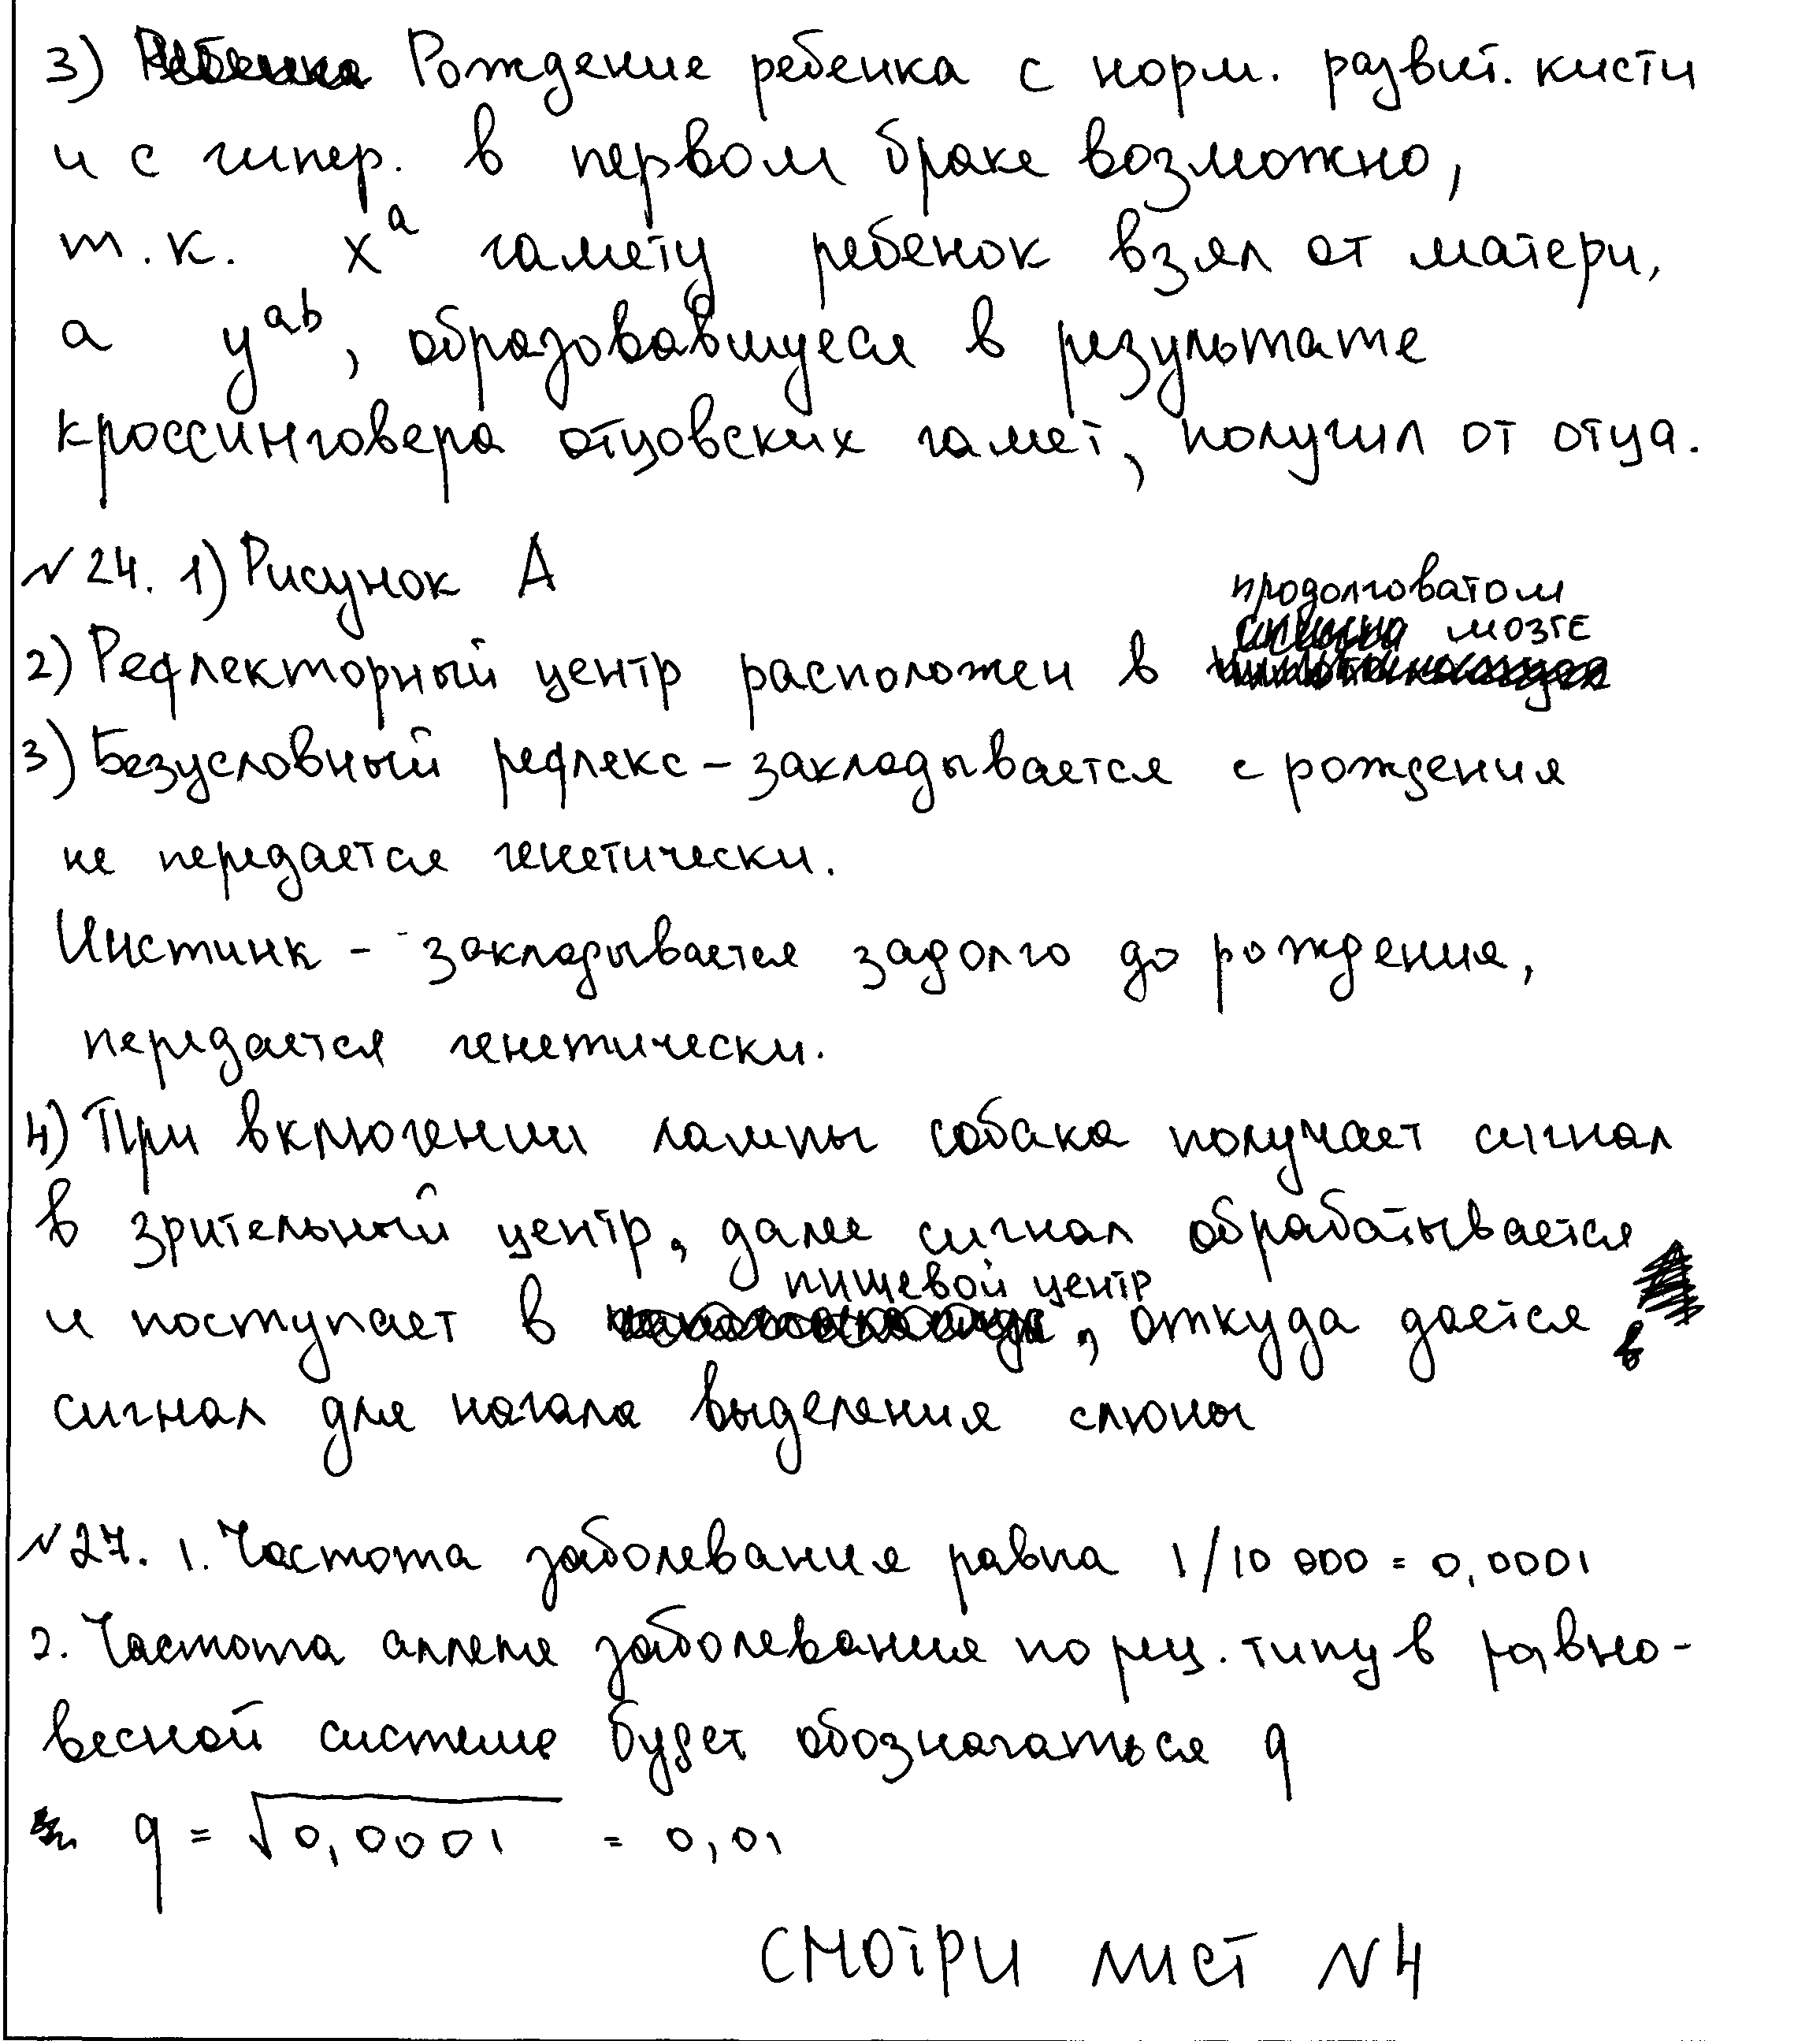 3) Рождение ребенка с норм. развит. кисти
и с гипер. в первом браке возможно,
т.к. x^a гамету ребенок взял от матери,
а y^ab, образовавшуеся в результате
кроссинговера отцовских гамет, получил от отца.
№24. 1) Рисунок А
2) Рефлекторный центр расположен в продолговатом мозге
3) Безусловный рефлекс – закладывается с рождения
не передается генетически.
Инстинк – закладывается задолго до рождения,
передается генетически.
4) При включении лампы собака получает сигнал
в зрительный центр, далее сигнал обрабатывается
и поступает в пищевой центр, откуда дается в
сигнал для начала выделения слюны
№27. 1. Частота заболевания равна 1/10 000 = 0,0001
2. Частота аллеле заболевания по рец. типу в равно-
весной системе будет обозначаться q
q = √0,0001 = 0,01
СМОТРИ ЛИСТ №4